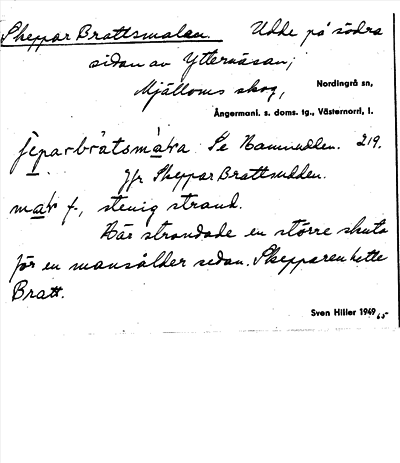 Skeppar Brattsmalan. Udde på södra
sidan av Ytternäsan;
Mjälloms skog, Nordingrå sn,
Ångermanl. s. doms. tg., Västernorrl, l.
Se Namnudden. 219.
Jfr Skeppar Brattsudden.
mar f., stenig strand.
Här strandade en större skuta
för en mansålder sedan. Skepparen hette
Bratt.
Sven Hiller 1949